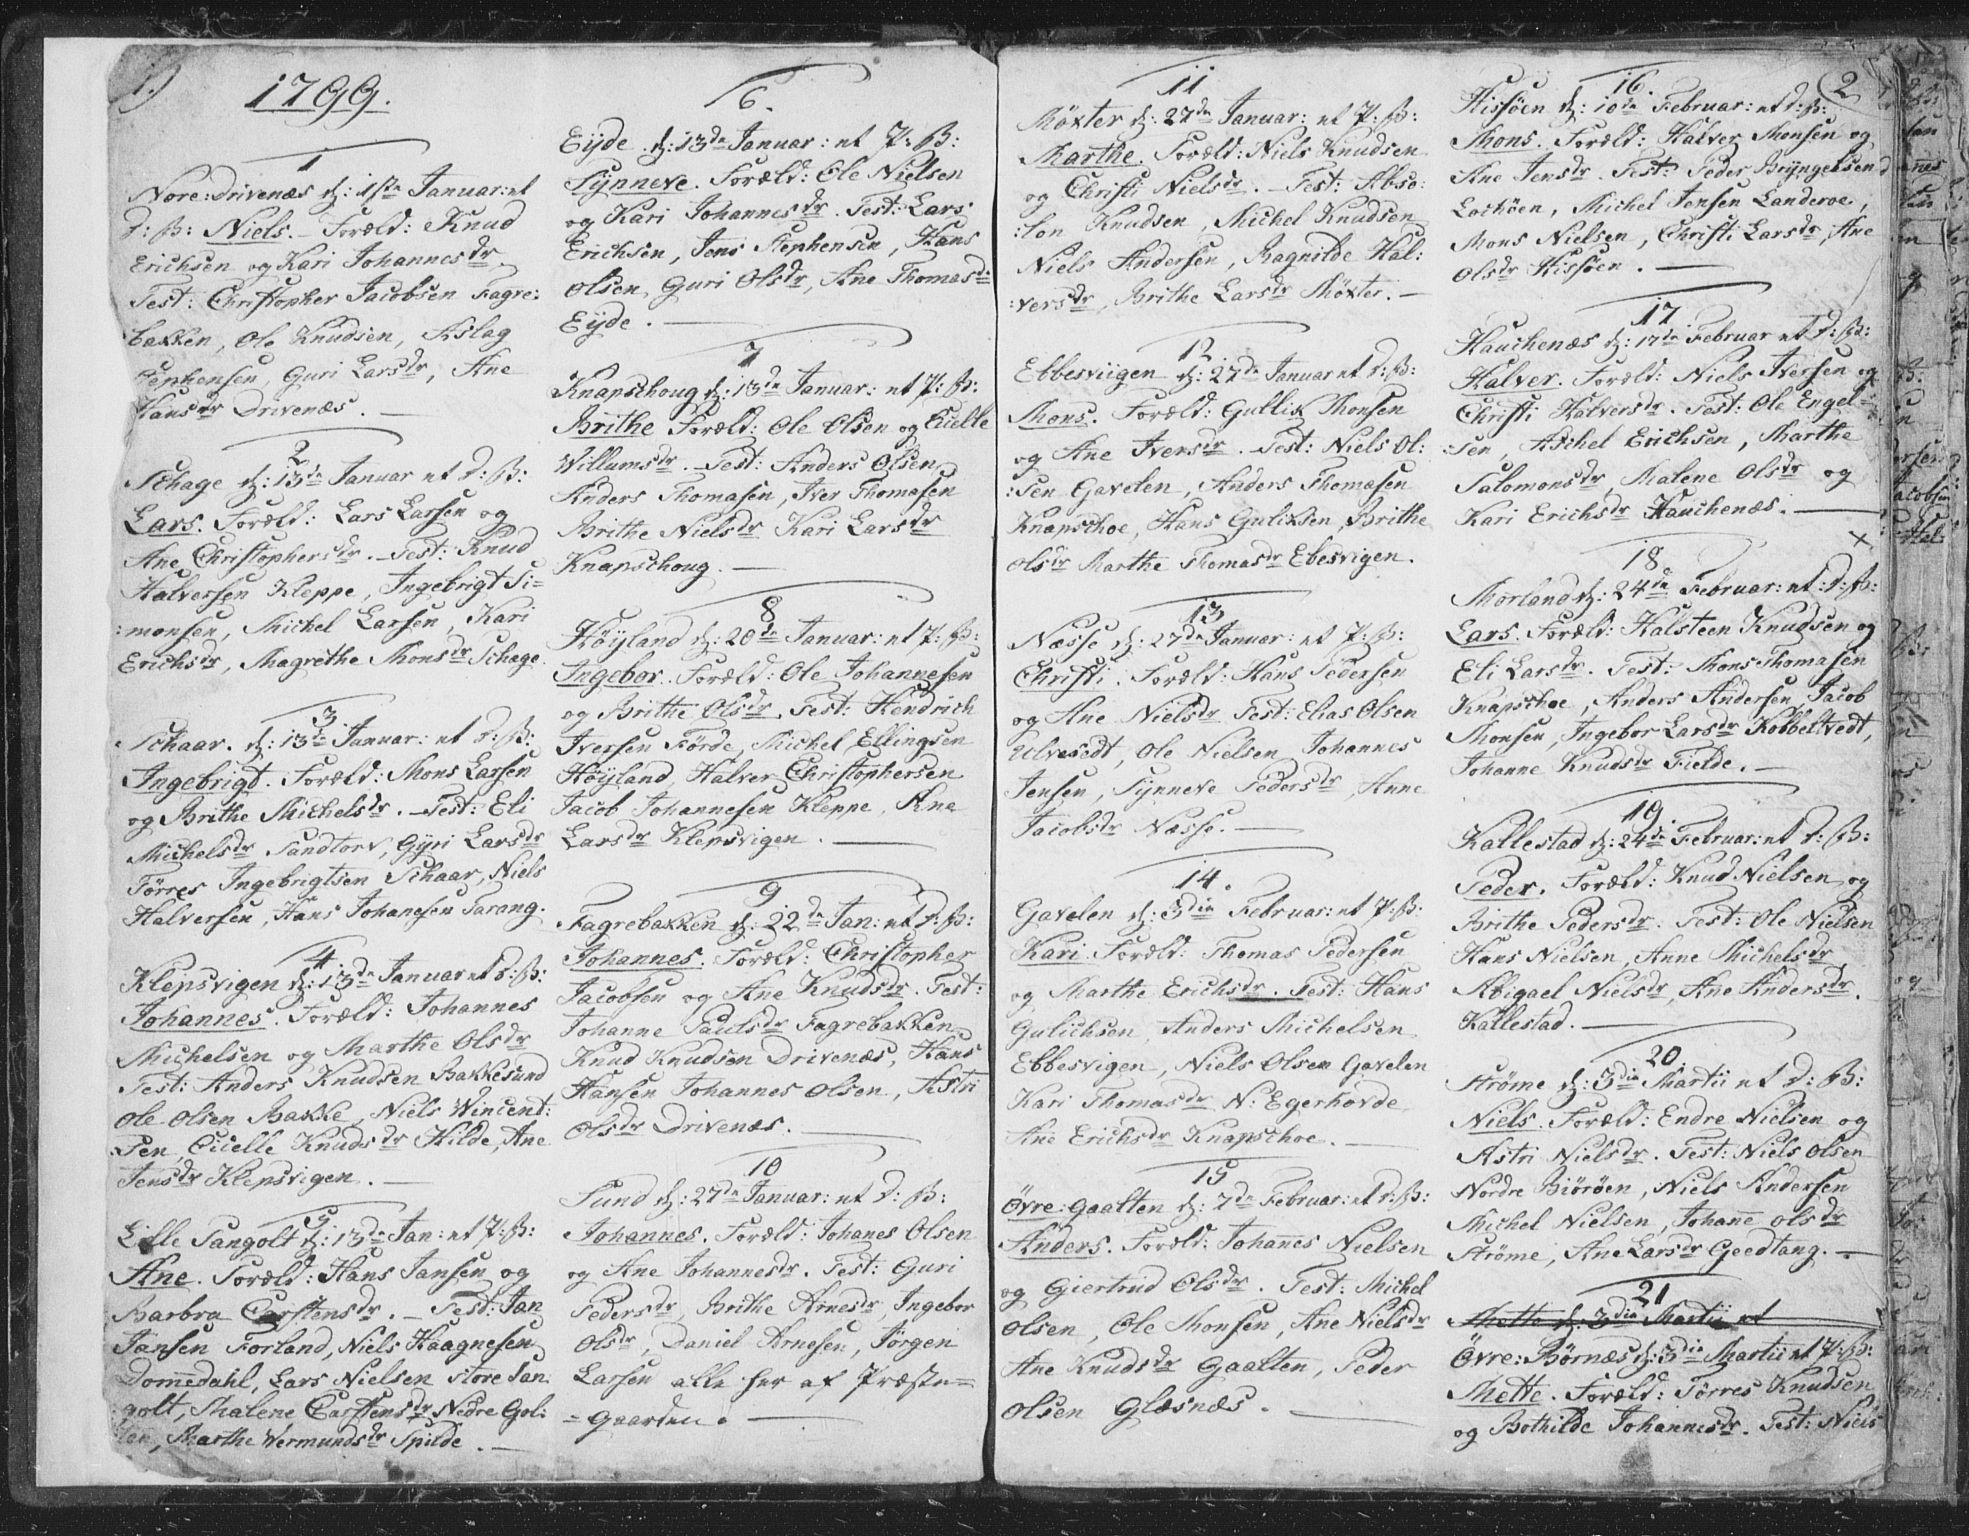 1.)
1799.
1
Nore: Drivenæs d: 1ste Januar: et
D: B: Niels. Foræld: Knud
Erichsen og Kari Johannesdr
Test: Christopher Jacobsen Fagre:
bakken, Ole Knudsen, Aslag
Stephensen, Guri Larsdr, Ane
Hansdr Drivenæs.
2
Schage d: 13de Januar et D: B:
Lars. Foræld: Lars Larsen og
Ane Christophersdr. Test: Knud
Halversen Kleppe, Ingebrigt Si=
:monsen, Michel Larsen, Kari
Erichsdr, Magrethe Monsdr Schage.
3
Schaar. d: 13de Januar: et D: B:
Ingebrigt. Foræld: Mons Larsen
og Brithe Michelsdr. Test: Eli
Michelsdr Sandtorv, Gyri Larsdr
Törres Ingebrigtsen Schaar, Niels
Halversen, Hans Johanesen Tarang.
4.
Klepsvigen d: 13de Januar et D: B:
Johannes. Foræld: Johannes
Michelsen og Marthe Olsdr
Test: Anders Knudsen Bakkesund
Ole Olsen Bakke, Niels Wincent:
Sen, Cicelle Knudsdr Hilde, Ane
Jensdr Klepsvigen.
5
Lille Sangolt d: 13de Jan: et P: B:
Ane. Foræld: Hans Jansen og
Barbra Carstensdr. Test: Jan
Jansen Forland, Niels Haagnesen
Domedahl, Lars Nielsen Store San
golt, Malene Carstensdr Nedre Gol:
ten, Marthe Vermundsdr Spilde.
6.
Eyde. d: 13de Januar: et P: B:
Synneve. Foræld: Ole Nielsen
og Kari Johannesdr. Test: Lars
Erichsen, Jens Stephensen, Hans
Olsen, Guri Olsdr, Ane Thomasdr
Eyde.
7
Knapschoug d: 13de Januar: et P: B:
Brithe Foræld: Ole Olsen og Cicelle
Willumsdr. Test: Anders Olsen
Anders Thomasen, Iver Thomasen
Brithe Nielsdr Kari Larsdr
Knapschoug.
8
Höyland d: 20de Januar: et P: B:
Ingebor. Foræld: Ole Johannesen
og Brithe Olsdr. Test: Hendrich
Iversen Förde, Michel Ellingsen
Höyland, Halver Christophersen
Jacob Johannesen Kleppe, Ane
Larsdr Klepsvigen.
9
Fagrebakken d: 22de Jan: et D: B:
Johannes. Foræld: Christopher
Jacobsen og Ane Knudsdr. Test:
Johanne Paulsdr Fagrebakken
Knud Knudsen Drivenæs, Hans
Hansen Johannes Olsen, Astri
Olsdr Drivenæs.
10
Sund d: 27de Januar: et D: B:
Johannes. Foræld: Johanes Olsen
og Ane Johannesdr. Test: Guri
Pedersdr, Brithe Arnesdr, Ingebor
Olsdr, Daniel Arnesen, Jörgen
Larsen alle her af Præste=
=gaarden.
11
Möxter d: 27de Januar: et P: B:
Marthe. Foræld: Niels Knudsen
og Christi Nielsdr. Test: Abso:
:lon Knudsen, Michel Knudsen
Niels Andersen, Ragnilde Hal:
:versdr, Brithe Larsdr Möxter.
12
Ebbesviigen d: 27de Januar et D: B:
Mons. Foræld: Gullix Monsen
og Ane Iversdr. Test: Niels Ol:
:sen Gavelen, Anders Thomasen
Knapschoe, Hans Gulixsen, Brithe
Olsdr Marthe Thomasdr Ebesvigen.
13
Næsse d: 27de Januar: et P: B:
Christi. Foræld: Hans Pedersen
og Ane Nielsdr Test: Elias Olsen
Ulvesedt, Ole Nielsen, Johannes
Jensen, Synneve Pedersdr, Anne
Jacobsdr Næsse.
14.
Gavelen d: 3die Februar: et P: B:
Kari. Foræld: Thomas Pedersen
og Marthe Erichsdr. Test: Hans
Gulichsen, Anders Michelsen
Ebbesvigen, Niels Olsen Gavelen
Kari Thomasdr N: Egerhovde
Ane Erichsdr Knapschoe.
15
Övre: Gaalten d: 7de Februar: et D: B:
Anders. Foræld: Johanes Nielsen
og Giertrud Olsdr. Test: Michel
Olsen, Ole Monsen, Ane Nielsdr
Ane Knudsdr Gaalten, Peder
Olsen Glæsnæs.
2
16.
Hissöen d: 10de Februar: et D: B:
Mons. Foræld: Halver Monsen og
Ane Jensdr. Test: Peder Bryngelsen
Lochöen, Michel Jensen Landeroe,
Mons Nielsen, Christi Larsdr, Ane
Olsdr Hissöen.
17
Hauchenæs d: 17de Februar et D: B:
Halver. Foræld: Niels Iversen og
Christi Halversdr. Test: Ole Engel=
sen, Aschel Erichsen, Marthe
Salomonsdr, Malene Olsdr og
Kari Erichsdr Hauchenæs.
×
18
Morland d: 24de Februar: et D: B:
Lars. Foræld: Halsteen Knudsen og
Eli Larsdr. Test: Mons Thomasen
Knapschoe, Anders Andersen, Jacob
Monsen, Ingebor Larsdr Kobbeltvedt,
Johanne Knudsdr Fielde.
19.
Kallestad d: 24de Februar: et D: B:
Peder. Foræld: Knud Nielsen og
Brithe Pedersdr. Test: Ole Nielsen
Hans Nielsen, Anne Michelsdr
Abigael Nielsdr, Ane Andersdr.
Kallestad.
20.
Ströme d: 3die Martii et D: B:
Niels. Foræld: Endre Nielsen og
Astri Nielsdr. Test: Niels Olsen
Nordre Biöröen, Niels Andersen
Michel Nielsen, Johane Olsdr
Ströme, Ane Larsdr Geedtang.
21
Mette d: 3die Martii et
Övre: Börnæs d: 3die Martii et P: B:
Mette. Foræld: Törres Knudsen
og Bothilde Johannesdr. Test: Niels